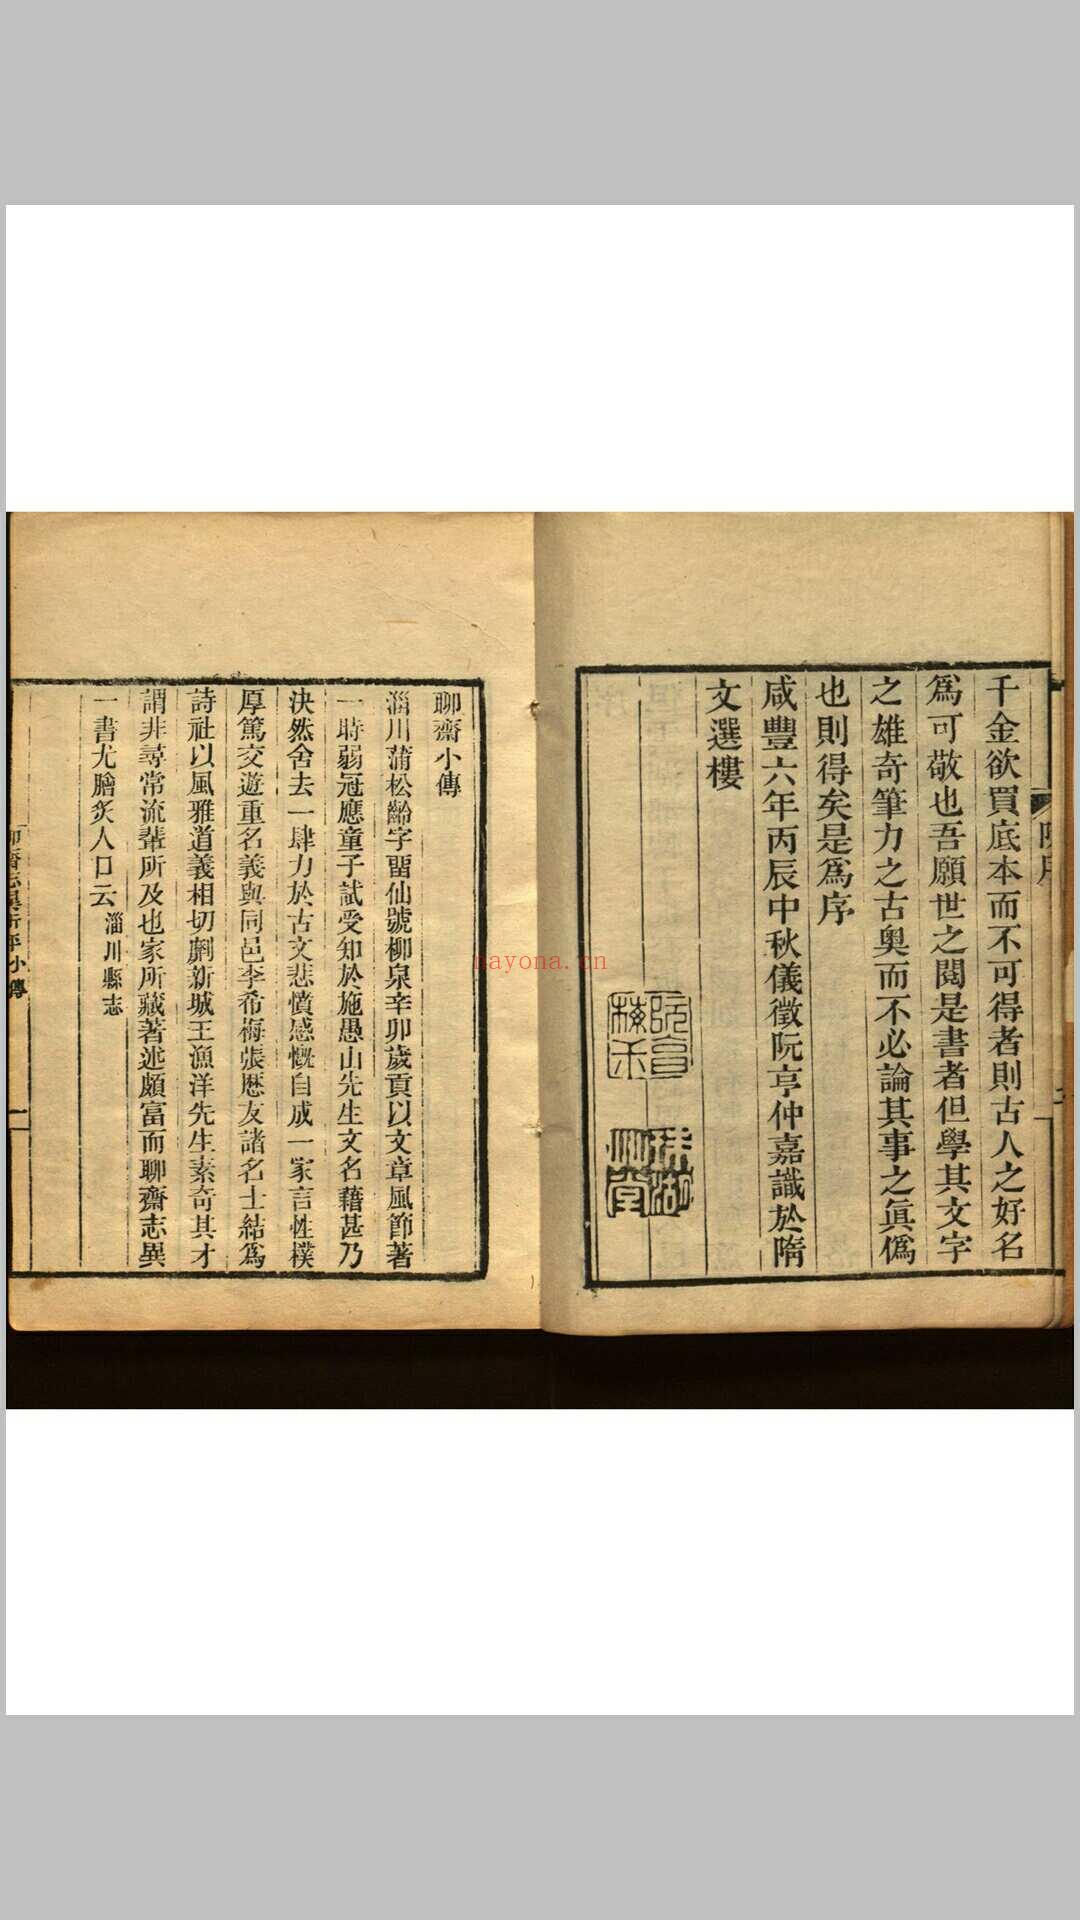 千金欲買底本而不可得者則古人之好名
爲可敬也吾願世之閱是書者但學其文字
之雄奇筆力之古奧而不必論其事之眞僞
也則得矣是爲序
咸豐六年丙辰中秋儀徵阮亨仲嘉識於隋
文選樓
聊齋小傳
淄川蒲松齡字畱仙號柳泉辛卯歲貢以文章風節著
一時弱冠應童子試受知於施愚山先生文名藉甚乃
決然舍去一肆力於古文悲憤感慨自成一家言性樸
厚篤交遊重名義與同邑李希梅張歷友諸名士結爲
詩社以風雅道義相切劘新城王漁洋先生素奇其才
謂非尋常流輩所及也家所藏著述頗富而聊齋志異
一書尤膾炙人口云淄川縣志
nayona.cn